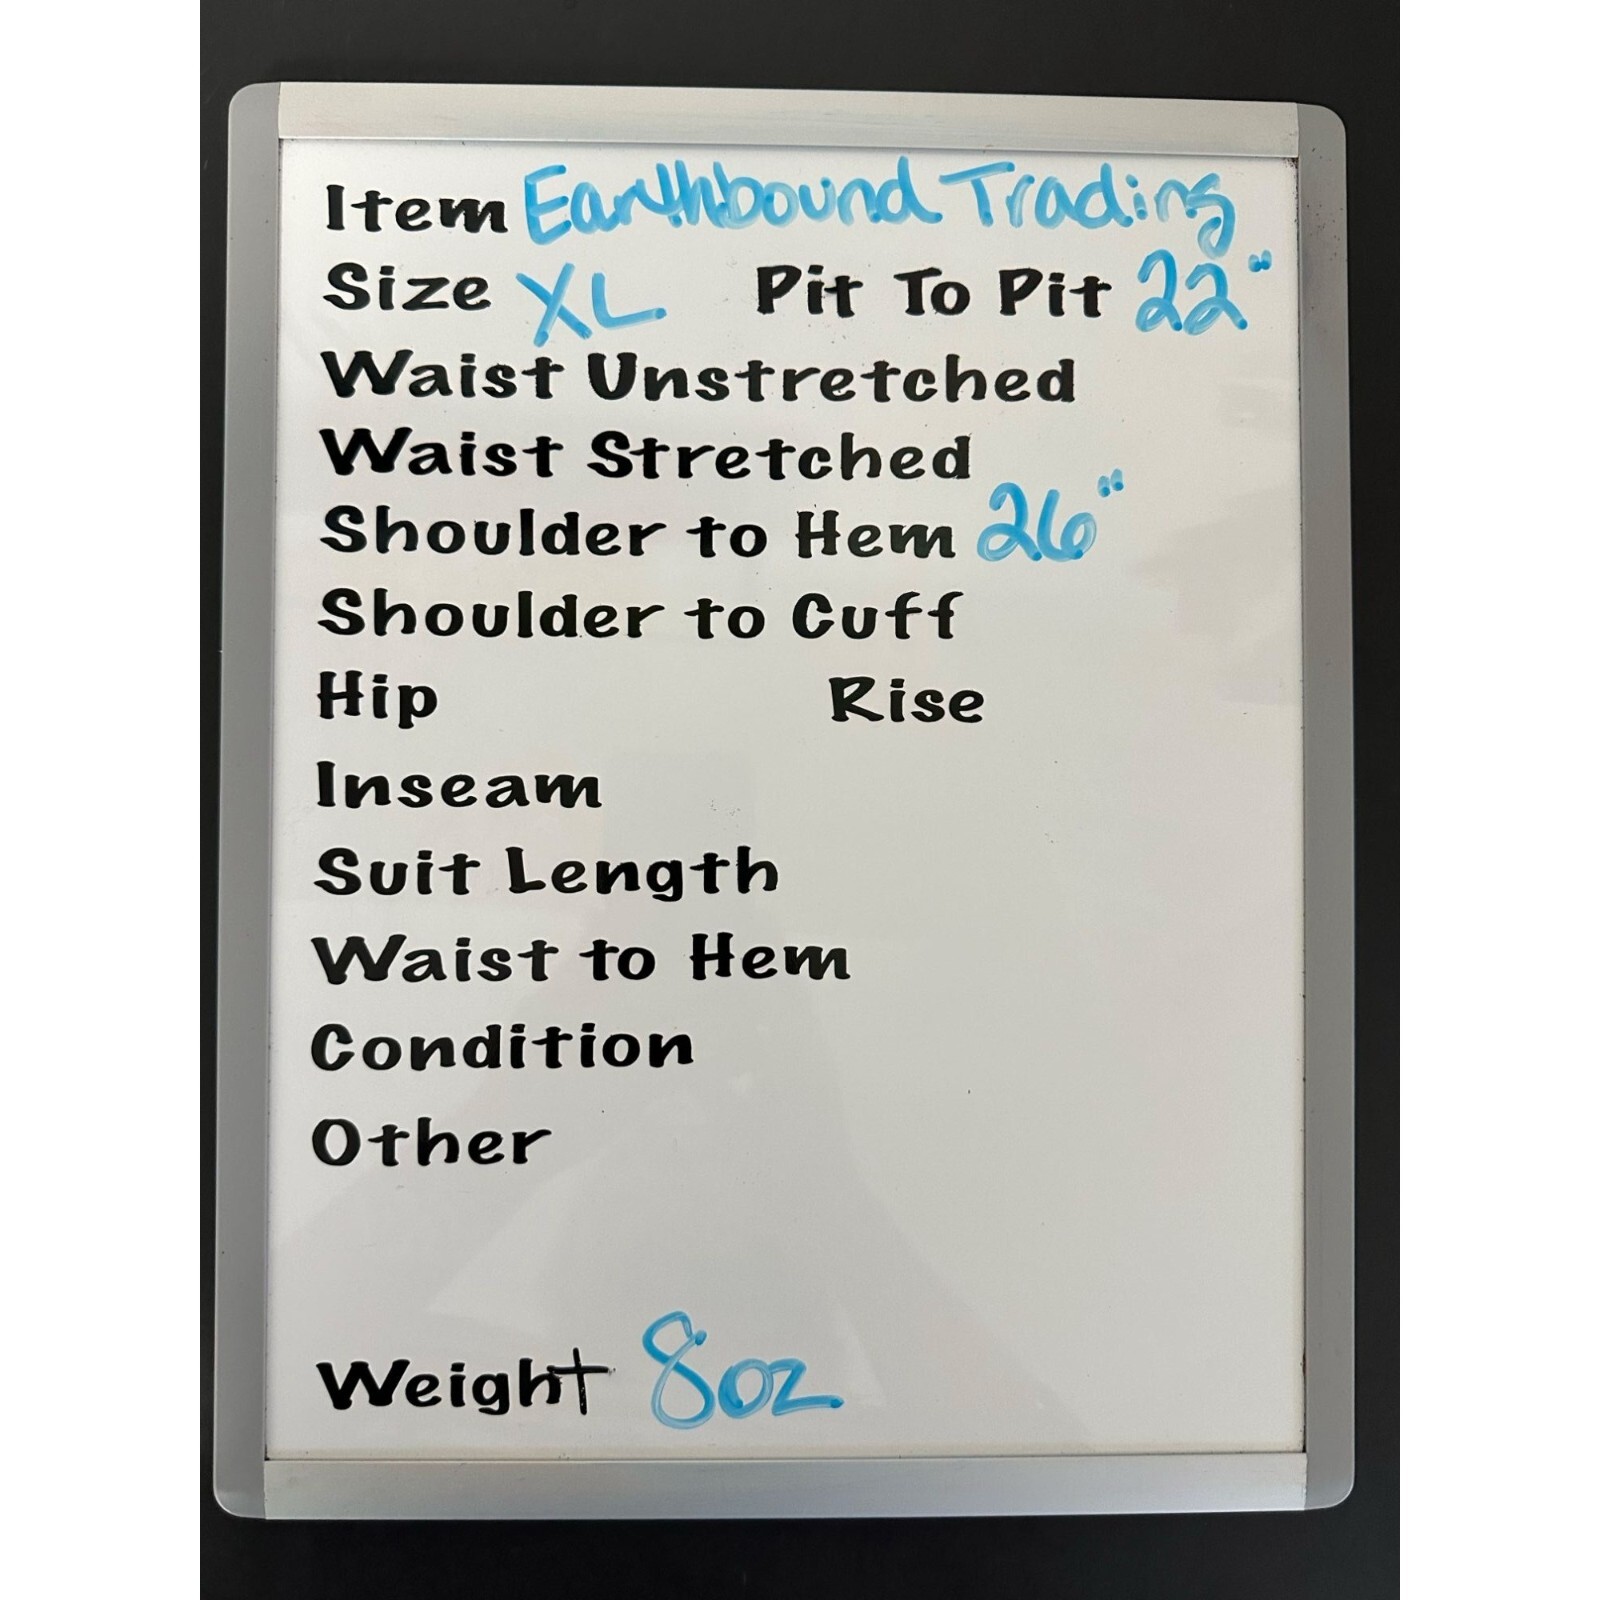 Item Earthbound Trading
Size XL Pit To Pit 22"
Waist Unstretched
Waist Stretched
Shoulder to Hem 26"
Shoulder to Cuff
Hip Rise
Inseam
Suit Length
Waist to Hem
Condition
Other
Weight 8oz